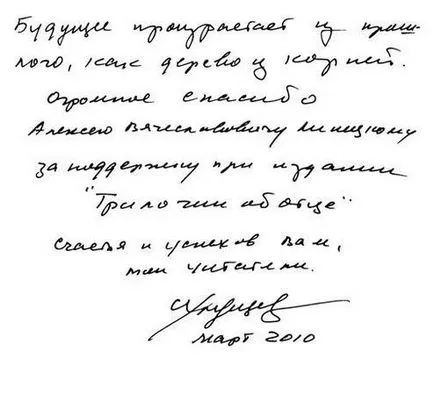 Будущее произрастает из прош-
лого, как дерево из корней.
Огромное спасибо
Алексею Вячеславовичу
за поддержку при издании
"Трилогии об отце"
Счастья и успехов вам,
мои читатели.
Хрущев
март 2010